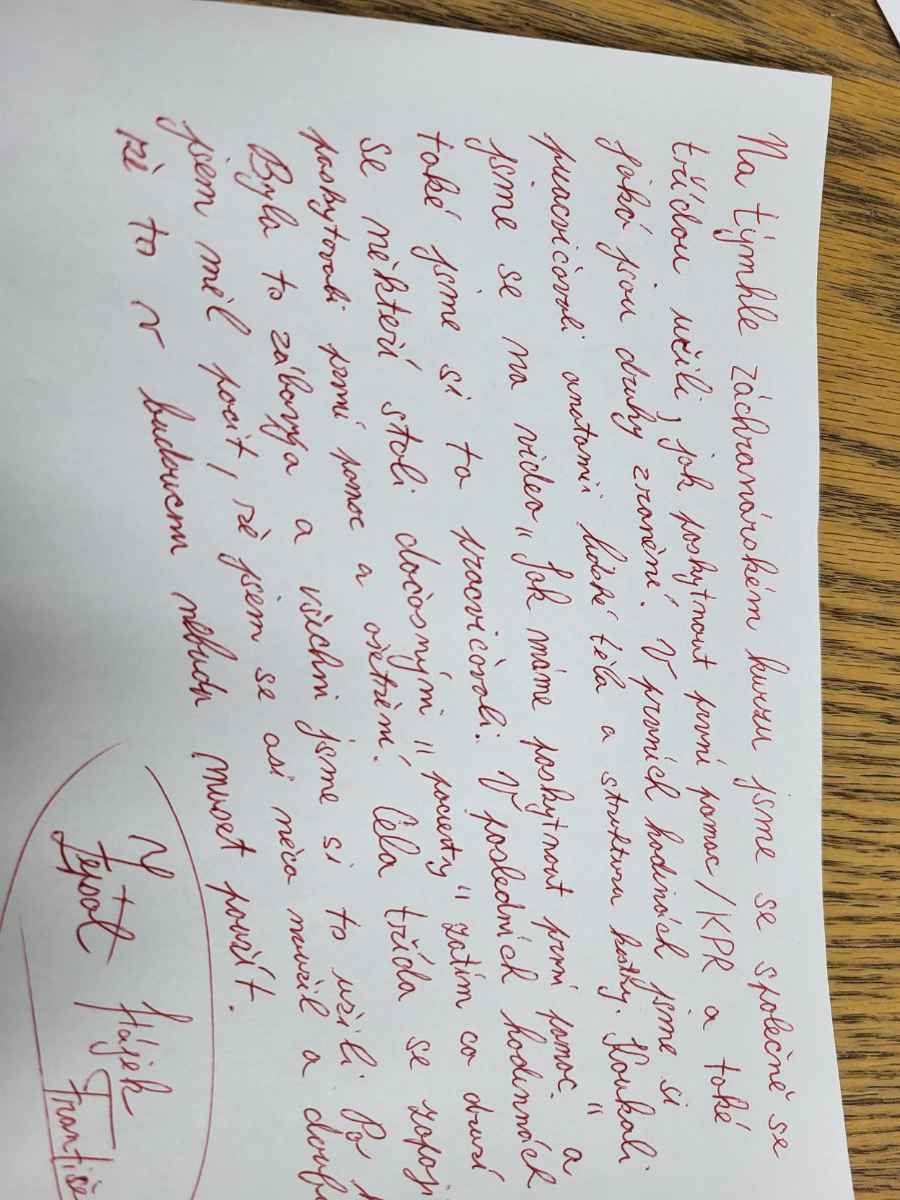 Na týmhle záchranářském kurzu jsme se společně se
třídou učili, jak poskytnout první pomoc/KPR a také
jaká jsou druhy zranění. V prvních hodinách jsme si
pracvičovali anatomii lidské těla a strukturu kostry. Koukali
jsme se na video „Jak máme poskytnout první pomoc." a
také jsme si to pracvičovali. V posledních hodinnách
se někteří stali dočasnými "pacienty" zatím co druzí
poskytovali první pomoc a ošetření. Celá třída se zapoji
Byla to zábava a všichni jsme si to užili. Po
jsem měl pocit, že jsem se asi něco naučil a doufá
že to v budoucnu nebudu muset použít.
Hájek
Františe